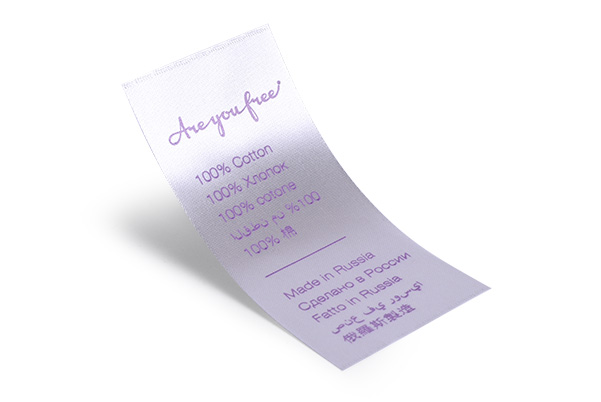 Are you free
100% Cotton
100% Хлопок
100% cotone
100% من القطن
100% 棉
Made in Russia
Сделано в России
Fatto in Russia
صنع في روسيا
俄羅斯製造